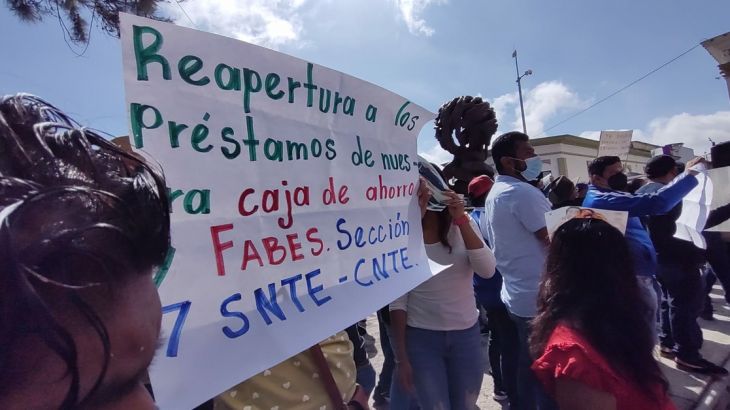 Reapertura a los
préstamos de nues-
ra caja de ahorro
FABES. Sección
7 SNTE-CNTE.